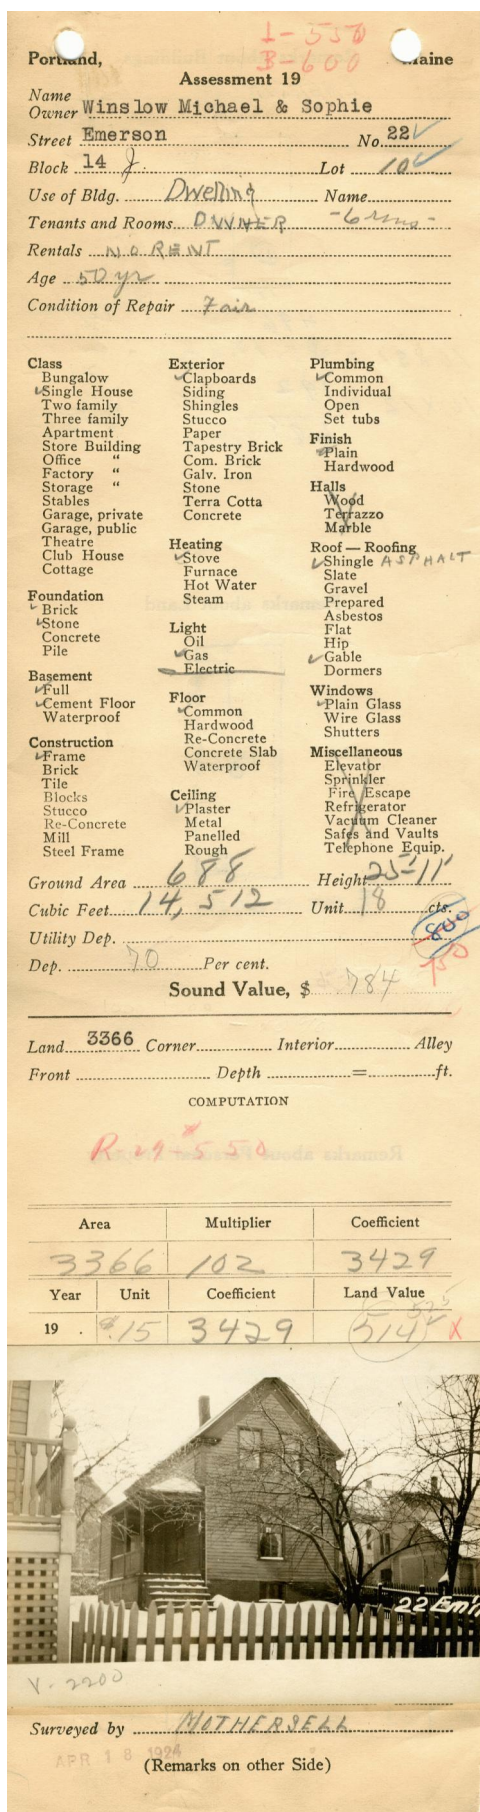 L - 550
B - 600
Portland, Maine
Assessment 19
Name
Owner Winslow Michael & Sophie
Street Emerson No. 22
Block 14 J. Lot 10
Use of Bldg. Dwelling Name
Tenants and Rooms OWNER - 6 rms -
Rentals NO RENT
Age 50 yr
Condition of Repair Fair
Class
Bungalow
Single House
Two family
Three family
Apartment
Store Building
Office "
Factory "
Storage "
Stables
Garage, private
Garage, public
Theatre
Club House
Cottage
Foundation
Brick
Stone
Concrete
Pile
Basement
Full
Cement Floor
Waterproof
Construction
Frame
Brick
Tile
Blocks
Stucco
Re-Concrete
Mill
Steel Frame
Exterior
Clapboards
Siding
Shingles
Stucco
Paper
Tapestry Brick
Com. Brick
Galv. Iron
Stone
Terra Cotta
Concrete
Heating
Stove
Furnace
Hot Water
Steam
Light
Oil
Gas
Electric
Floor
Common
Hardwood
Re-Concrete
Concrete Slab
Waterproof
Ceiling
Plaster
Metal
Panelled
Rough
Plumbing
Common
Individual
Open
Set tubs
Finish
Plain
Hardwood
Halls
Wood
Terrazzo
Marble
Roof — Roofing
Shingle ASPHALT
Slate
Gravel
Prepared
Asbestos
Flat
Hip
Gable
Dormers
Windows
Plain Glass
Wire Glass
Shutters
Miscellaneous
Elevator
Sprinkler
Fire Escape
Refrigerator
Vacuum Cleaner
Safes and Vaults
Telephone Equip.
Ground Area 688 Height 25'-11'
Cubic Feet 14,512 Unit 18 cts.
Utility Dep. 800
Dep. 70 Per cent. 750
Sound Value, $ 784
Land 3366 Corner Interior Alley
Front Depth = ft.
COMPUTATION
R 29 - $550
Area Multiplier Coefficient
3366 102 3429
Year Unit Coefficient Land Value
525
19 . $.15 3429 514 X
22 Em'n
V - 2200
Surveyed by MOTHERSELL
APR 18 1924
(Remarks on other Side)